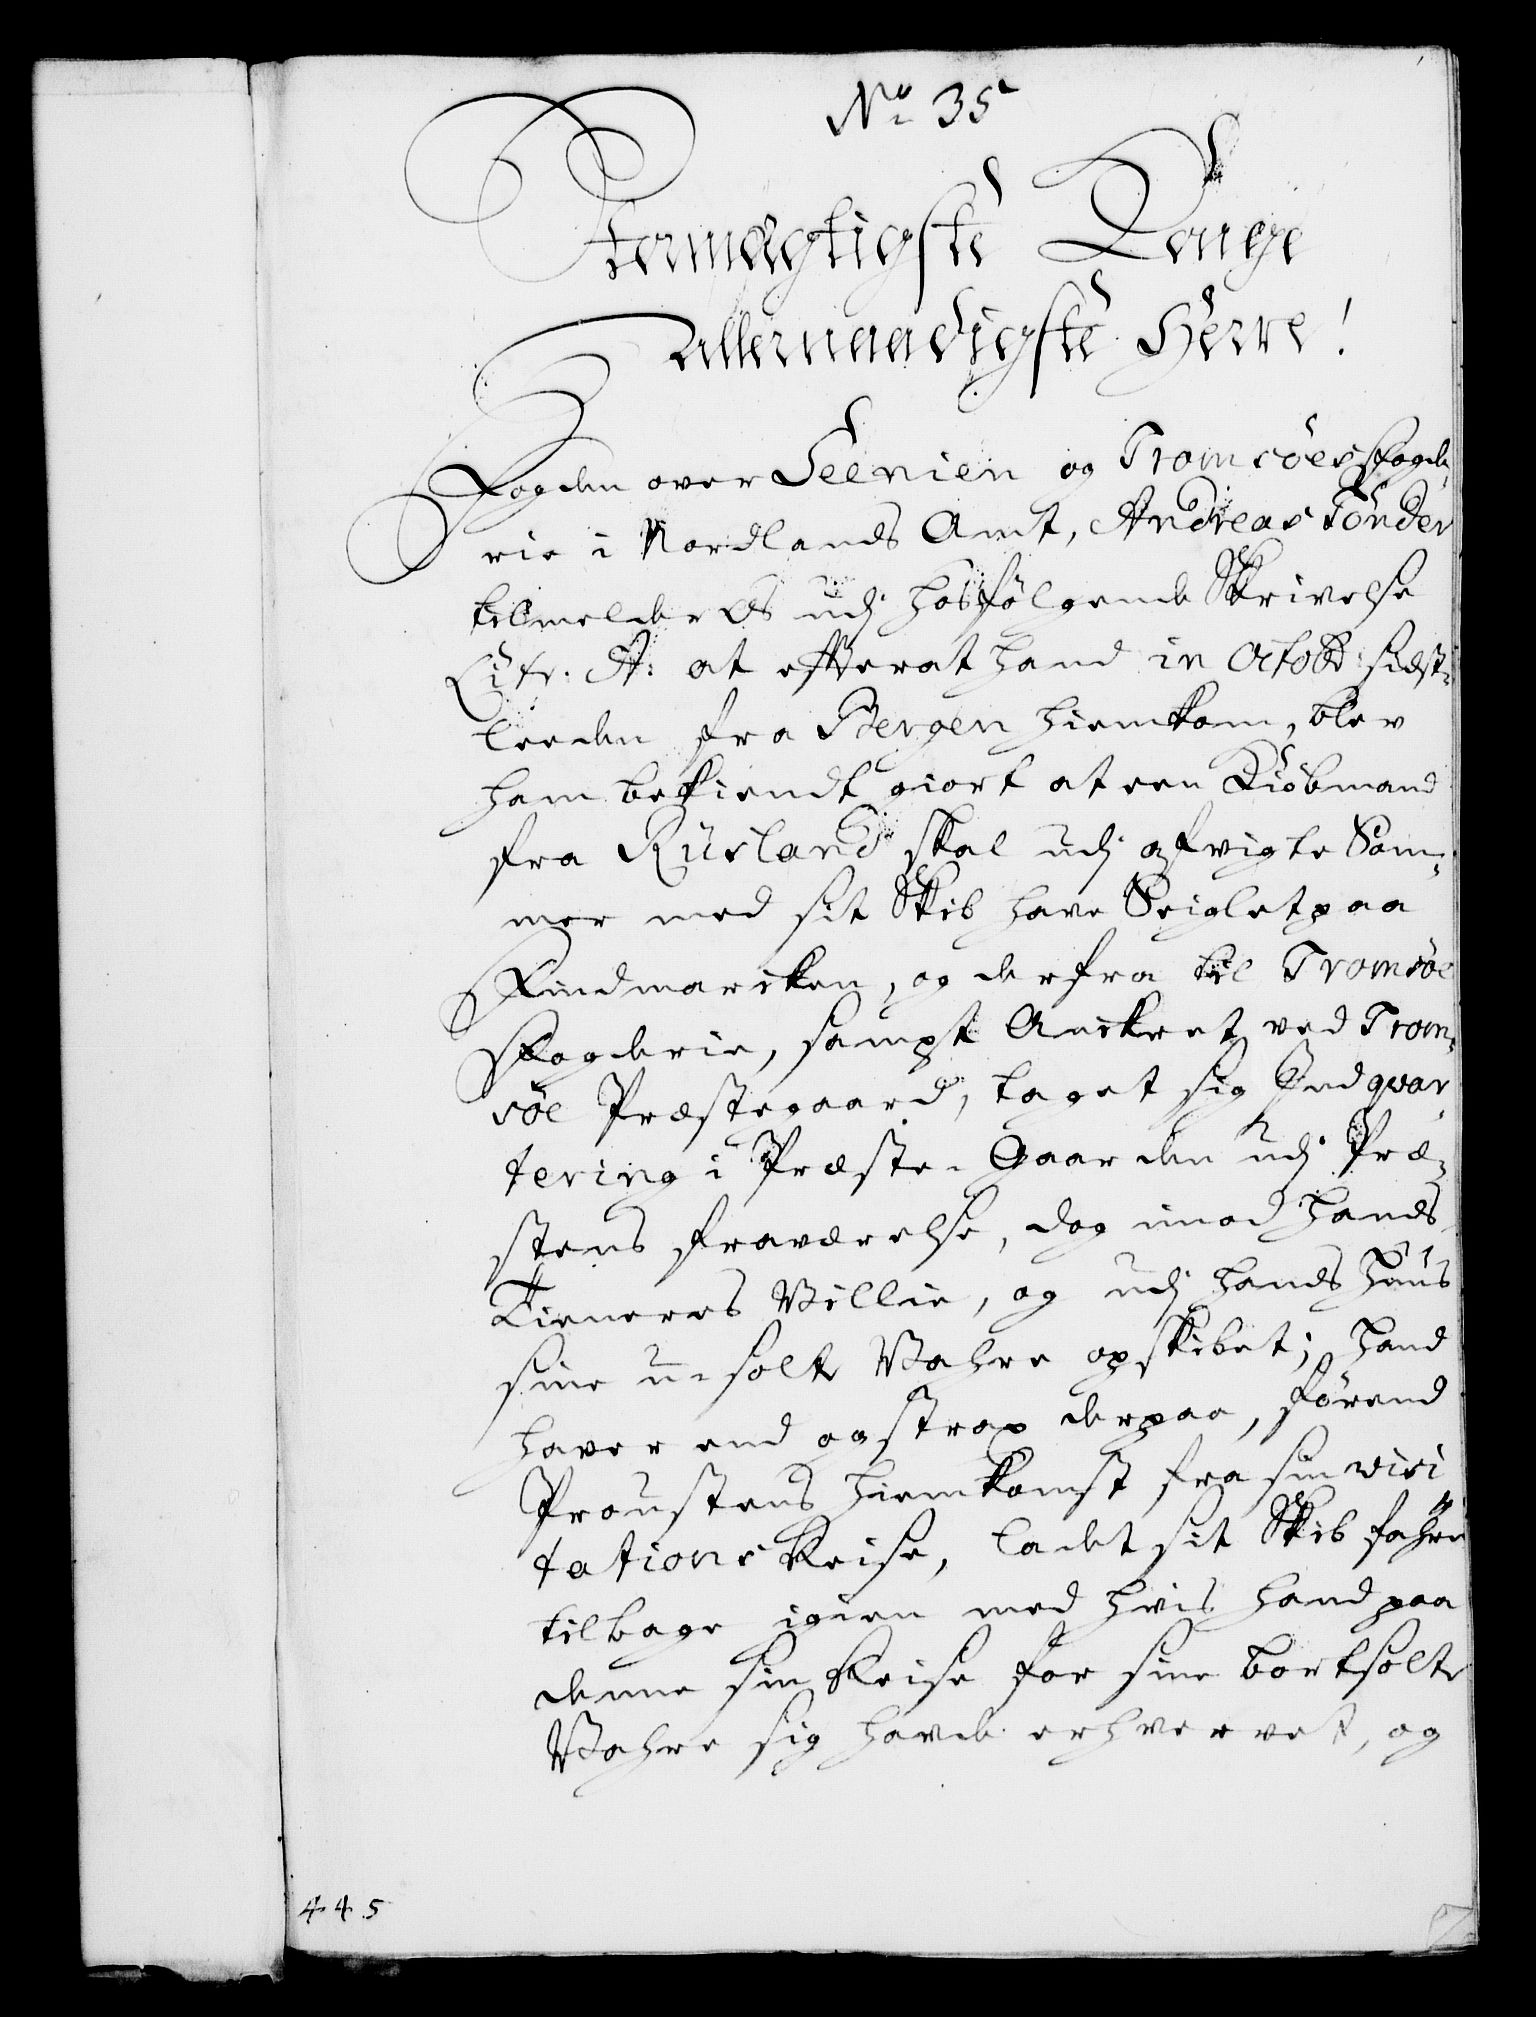 No 35
Stormægtigste Konge
Allernaadigste Herre!
Fogden over Seenien og Tromsöes Fogde-
rie i Nordlands Amt, Andreas Tönder
tilmelder Os udj hosfölgende Skrivelse
Litr. A: at efterat hand in Octobr: sidst-
leeden fra Bergen hiemkom, blev
ham bekiendt giort at een Kiöbmand
fra Rüsland skal udj afvigte Som-
mer med sit Skib have Seiglet paa
Findmarcken, og derfra til Tromsöe
Fogderie, sampt Anckret ved Trom-
söe Præstegaard, taget sig Indqvar-
tering i Præste-Gaarden udj Præ-
stens fraværelse, dog imod hands
Tieneres Villie, og udj hands Huus
sine u-solte Vahre opskibet; Hand
haver end og strax derpaa, förend
Proustens hiemkomst fra sin visi
tations Reise, ladet sit Skib fahre
tilbage igien med hvis hand paa
denne sin Reise for sine bortsolte
Vahre sig havde erhvervet, og
445